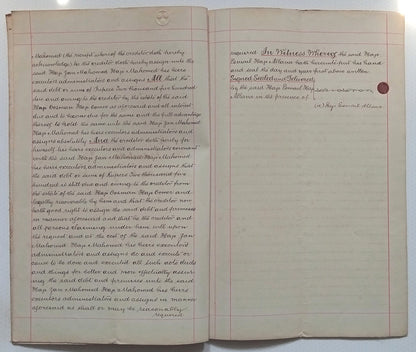 Mahomed (the receipt whereof the creditor doth hereby
acknowledge) he the creditor doth hereby assign unto the
said Haji Jan Mahomed Haji Mahomed his heirs
executors administrators and assigns All that the
said debt or sums of Rupees Two thousand five hundred
due and owing to the creditor by the estate of the said
Haji Oosman Haji Comor as aforesaid and all interest
due and to become due for the same and the full advantage
thereof to hold the same unto the said Haji Jan Mahomed
Haji Mahomed his heirs executors administrators and
assigns absolutely And the creditor doth hereby for
himself his heirs executors administrators and
assigns covenant with the said Haji Jan Mahomed Haji Mahomed
his heirs executors administrators and assigns that
the said debt or sum of Rupees Two thousand five
hundred is still due and owing to the creditor from
the estate of the said Haji Oosman Haji Comor and
legally recoverable by them and that the creditor now
hath good right to assign the said debt and premises
in manner aforesaid and that he the creditor and
all persons claiming under him will upon
the request and at the cost of the said Haji Jan
Mahomed Haji Mahomed his heirs executors
administrators and assigns do and execute or
cause to be done and executed all such acts deeds
and things for better and more effectually assur
ing the said debt and premises unto the said
Haji Jan Mahomed Haji Mahomed his heirs
executors administrators and assigns in manner
aforesaid as shall or may be reasonably
required
required In Witness Whereof the said Haji
Haji Allana hath hereunto put his hand
and seal the day and year first above written
Signed Sealed and Delivered
by the said Haji Haji
Allana in the presence of